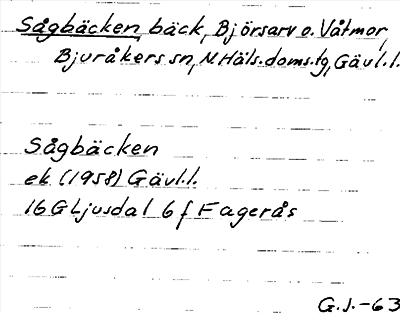 Sågbäcken, bäck, Björsarv o. Våtmor,
Bjuråkers sn, N.Häls.doms.tg, Gävl.l.
Sågbäcken
ek (1958) Gävl.l.
16G Ljusdal 6 f Fagerås
G.J.-63